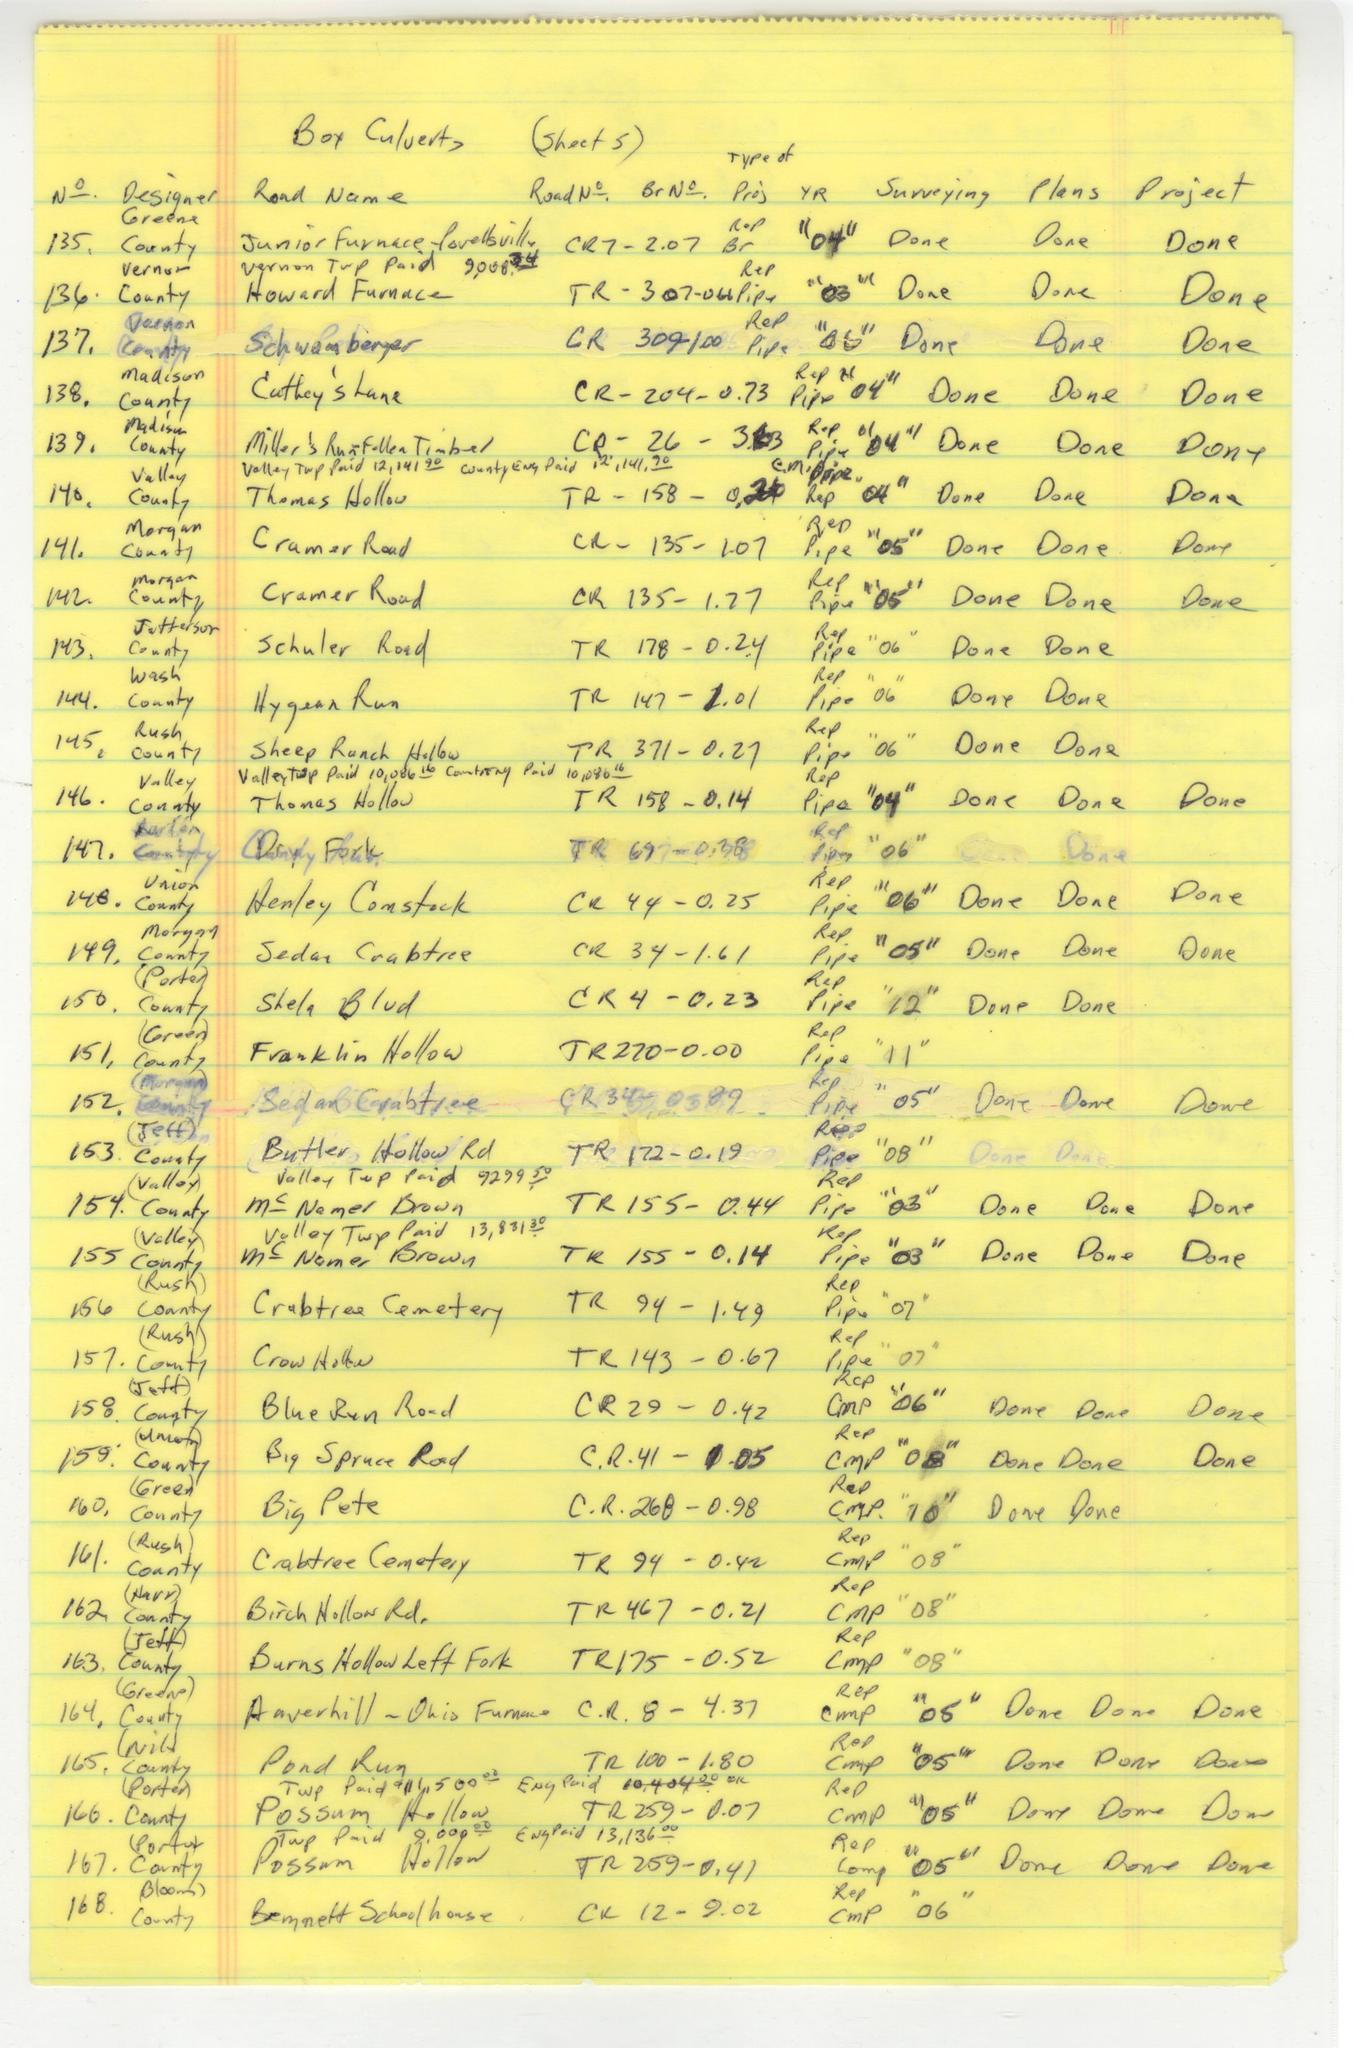 Box Culverts (Sheet 5)
Type of
No. Designer Road Name Road No. Br No. Proj YR Surveying Plans Project
Greene Rep
135. County Junior Furnace-Powellsville CR7-2.07 Br "04" Done Done Done
Vernon Vernon Twp Paid 9,008.34 Rep
136. County Howard Furnace TR-307-0 Pipe "03" Done Done Done
Vernon Rep
137. County Schwamberger CR 309-1.00 Pipe Done Done Done
Madison Rep
138. County Cuthey's Lane CR-204-0.73 Pipe "04" Done Done Done
Madison Rep
139. County Miller's Run-Fallen Timber CR-26- Pipe "04" Done Done Done
Valley Valley Twp Paid 12,141.90 County Eng Paid 12,141.90 C.M. Pipe
140. County Thomas Hollow TR-158-0.26 Rep "04" Done Done Done
Morgan Rep
141. County Cramer Road CR-135-1.07 Pipe "05" Done Done Done
Morgan Rep
142. County Cramer Road CR 135-1.77 Pipe "05" Done Done Done
Jefferson Rep
143. County Schuler Road TR 178-0.24 Pipe "06" Done Done
Wash Rep
144. County Hygean Run TR 147-1.01 Pipe "06" Done Done
Rush Rep
145. County Sheep Ranch Hollow TR 371-0.27 Pipe "06" Done Done
Valley Valley Twp Paid 10,086.16 County Eng Paid 10,086.16 Rep
146. County Thomas Hollow TR 158-0.14 Pipe "04" Done Done Done
Rep
147. County Fork TR 697-0.38 Pipe "06" Done
Union Rep
148. County Henley Comstock CR 44-0.25 Pipe "06" Done Done Done
Morgan Rep
149. County Sedan Crabtree CR 34-1.61 Pipe "05" Done Done Done
(Porter) Rep
150. County Shela Blvd CR 4-0.23 Pipe "12" Done Done
(Green) Rep
151. County Franklin Hollow TR 270-0.00 Pipe "11"
(Morgan) Rep
152. County Sedan Crabtree CR 34-0.89 Pipe "05" Done Done Done
(Jeff) Rep
153. County Butler Hollow Rd TR 172-0.19 Pipe "08" Done Done
(Valley) Valley Twp Paid 9299.50 Rep
154. County McNamer Brown TR 155-0.44 Pipe "03" Done Done Done
(Valley) Valley Twp Paid 13,831.30 Rep
155 County McNamer Brown TR 155-0.14 Pipe "03" Done Done Done
(Rush) Rep
156 County Crabtree Cemetery TR 94-1.49 Pipe "07"
(Rush) Rep
157. County Crow Hollow TR 143-0.67 Pipe "07"
(Jeff) Rep
158. County Blue Run Road CR 29-0.42 Cmp "06" Done Done Done
(Union) Rep
159. County Big Spruce Road C.R.41-1.05 Cmp "08" Done Done Done
(Green) Rep
160. County Big Pete C.R.268-0.98 Cmp. "10" Done Done
(Rush) Rep
161. County Crabtree Cemetery TR 94-0.42 Cmp "08"
(Harr) Rep
162. County Birch Hollow Rd. TR 467-0.21 Cmp "08"
(Jeff) Rep
163. County Burns Hollow Left Fork TR 175-0.52 Cmp "08"
(Greene) Rep
164. County Haverhill-Ohio Furnace C.R. 8-4.37 Cmp "05" Done Done Done
(Nile) Rep
165. County Pond Run TR 100-1.80 Cmp "05" Done Done Done
(Porter) Twp Paid 11,500.00 Eng Paid 10,404.00 OK Rep
166. County Possum Hollow TR 259-0.07 Cmp "05" Done Done Done
(Porter Twp Paid 9,000.00 Eng Paid 13,136.00 Rep
167. County Possum Hollow TR 259-0.41 Comp "05" Done Done Done
Bloom) Rep
168. County Bennett Schoolhouse CR 12-9.02 Cmp "06"